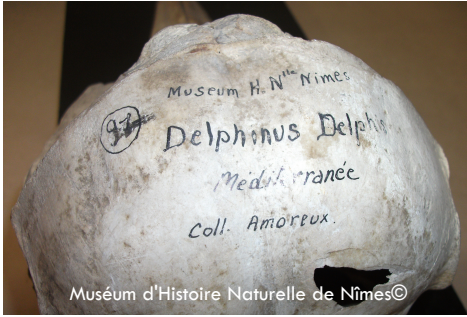 Museum H. Nlle Nimes
Delphinus
Mediterranée
Coll. Amoreux.
Muséum d'Histoire Naturelle de Nîmes©